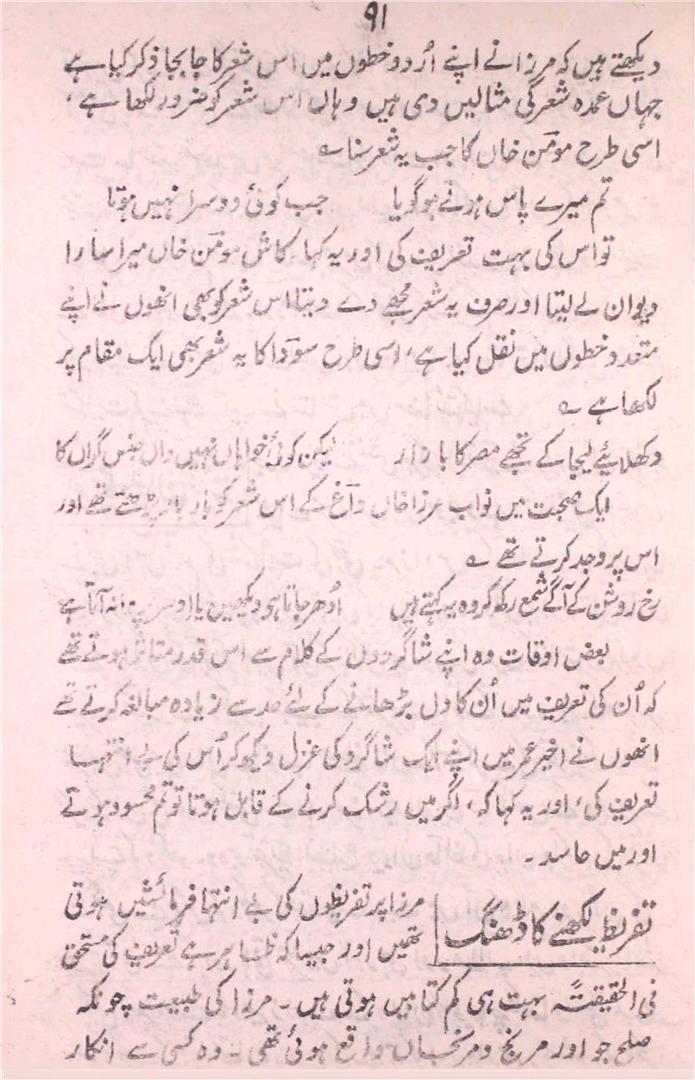 ۹۱
دیکھتے ہیں کہ مرزا نے اپنے اُردو خطوں میں اس شعر کا جا بجا ذکر کیا ہے
جہاں عمدہ شعر کی مثالیں دی ہیں وہاں اس شعر کو ضرور لکھا ہے ،
اسی طرح مومن خاں کا جب یہ شعر سنا ؎
تم میرے پاس ہوتے ہو گویا جب کوئی دوسرا نہیں ہوتا
تو اس کی بہت تعریف کی اور یہ کہا۔ کاش مومن خاں میرا سارا
دیوان لے لیتا اور صرف یہ شعر مجھے دے دیتا، اس شعر کو بھی انھوں نے اپنے
متعدد خطوں میں نقل کیا ہے، اسی طرح سودا کا یہ شعر بھی ایک مقام پر
لکھا ہے ؎
دکھلائیے لیجا کے تجھے مصر کا بازار لیکن کوئی خواہاں نہیں واں جنس گراں کا
ایک صحبت میں نواب مرزا خاں داغ کے اس شعر کو بار بار پڑھتے تھے اور
اس پر وجد کرتے تھے ؎
رخ روشن کے آگے شمع رکھ کر وہ یہ کہتے ہیں اُدھر جاتا ہی دیکھیں یا ادھر پروانہ آتا ہے
بعض اوقات وہ اپنے شاگردوں کے کلام سے اس قدر متاثر ہوتے تھے
کہ اُن کی تعریف میں اُن کا دل بڑھانے کے لئے حد سے زیادہ مبالغہ کرتے تھے
انھوں نے اخیر عمر میں اپنے ایک شاگرد کی غزل دیکھ کر اُس کی بے انتہا
تعریف کی، اور یہ کہا کہ، اگر میں رشک کرنے کے قابل ہوتا تو تم محسود ہوتے
اور میں حاسد ۔
تقریظ لکھنے کا ڈھنگ
مرزا پر تقریظوں کی بے انتہا فرمائشیں ہوتی
تھیں اور جیسا کہ ظاہر ہے تعریف کی مستحق
فی الحقیقتہً بہت ہی کم کتابیں ہوتی ہیں ۔ مرزا کی طبیعت چونکہ
صلح جو اور مرنج و مرنجان واقع ہوئی تھی ۔ وہ کسی سے انکار